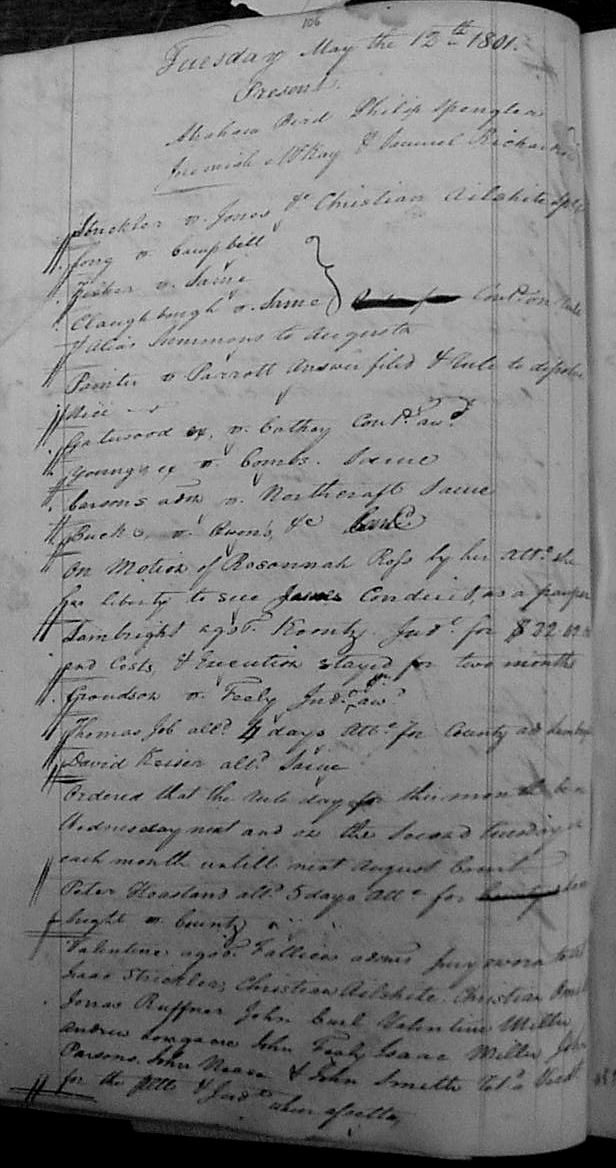 106
Tuesday May the 12th 1801.
Present.
Abraham Bird Philip Spengler
Jeremiah McKay & Samuel Richardson
Strickler v. Jones &c Christian Ailshite
Long v. Campbell
Fisher v. Same
Claughbough v. Same } Contd on
alias Summons to Augusta
Painter v. Parrott Answer filed & rule to
Gatewood ex. v. Cathey Contd awd
Youngs ex v. Combs. Same
Carsons adm v. Northcraft Same
Buck v. &c
On Motion of Rosannah Ross by her Atto she
has liberty to sue James Conderit, as a pauper
Lambright agst. Koontz Judt for $32
and Costs, & Execution stayed for two months
v. Feely Judt on awd
Thomas Job alld 4 days Atte for County ads
David Keiser alld Same
Ordered that the rule day for this month be on
Wednesday next and on the Second Tuesday in
each month untill next August Court
Peter Hoasland alld 5 days Atte for
bright v. County
Valentine agst. adms Jury sworn to wit
Isaac Strickler, Christian Ailshite. Christian
Jonas Ruffner John Earl Valentine Miller
Andrew John Feely Isaac Miller John
Parsons. John Nease & John Smith Vert
for the pltt & Judt when assetts,